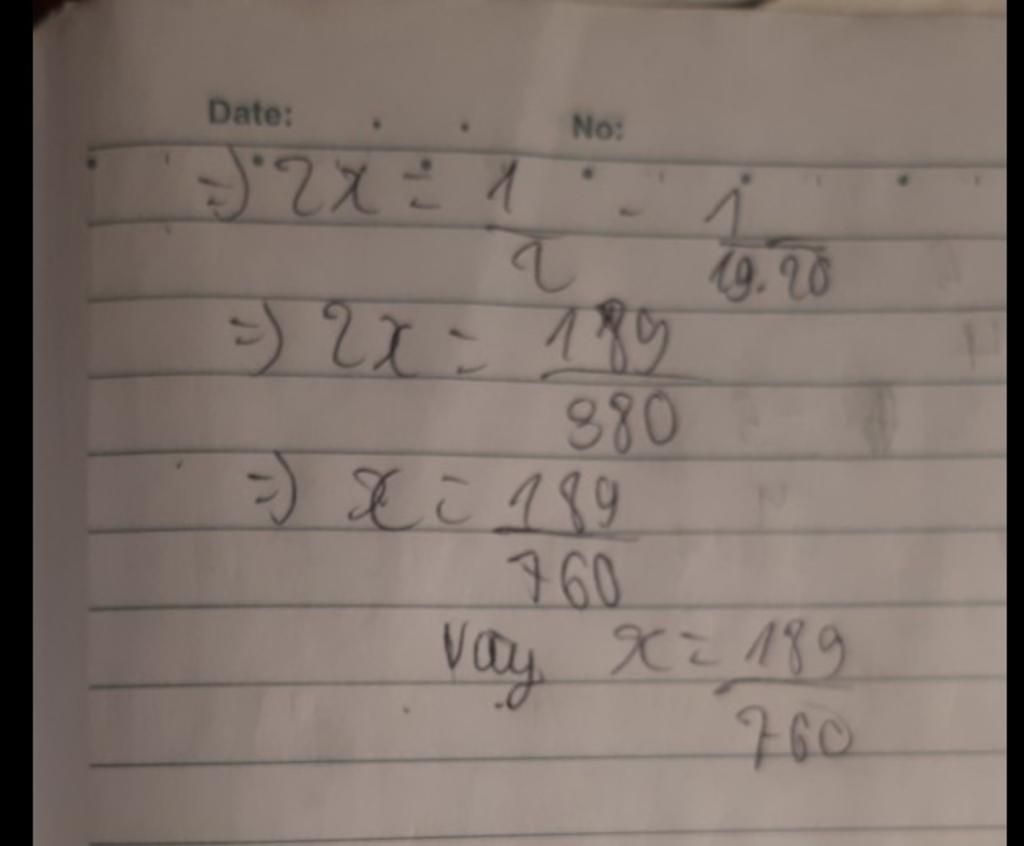 Date: No:
=) 2x = 1/2 - 1/19.20
=) 2x = 189/380
=) x = 189/760
Vậy x = 189/760